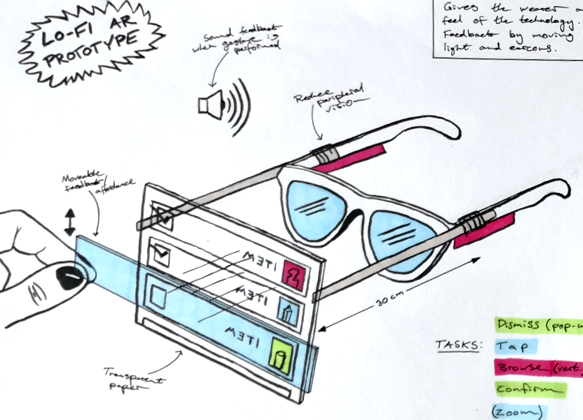 LO-FI AR
PROTOTYPE
Sound feedback
when gesture is
performed
Gives the wearer a
feel of the technology.
Feedback by moving
light and earcons.
Reduce
peripheral
vision
Moveable
feedback/
affordance
ITEM
ITEM
ITEM
ITEM
30 cm
Transparent
paper
TASKS:
Dismiss (pop-u
Tap
Browse (vert.
Confirm
(zoom)